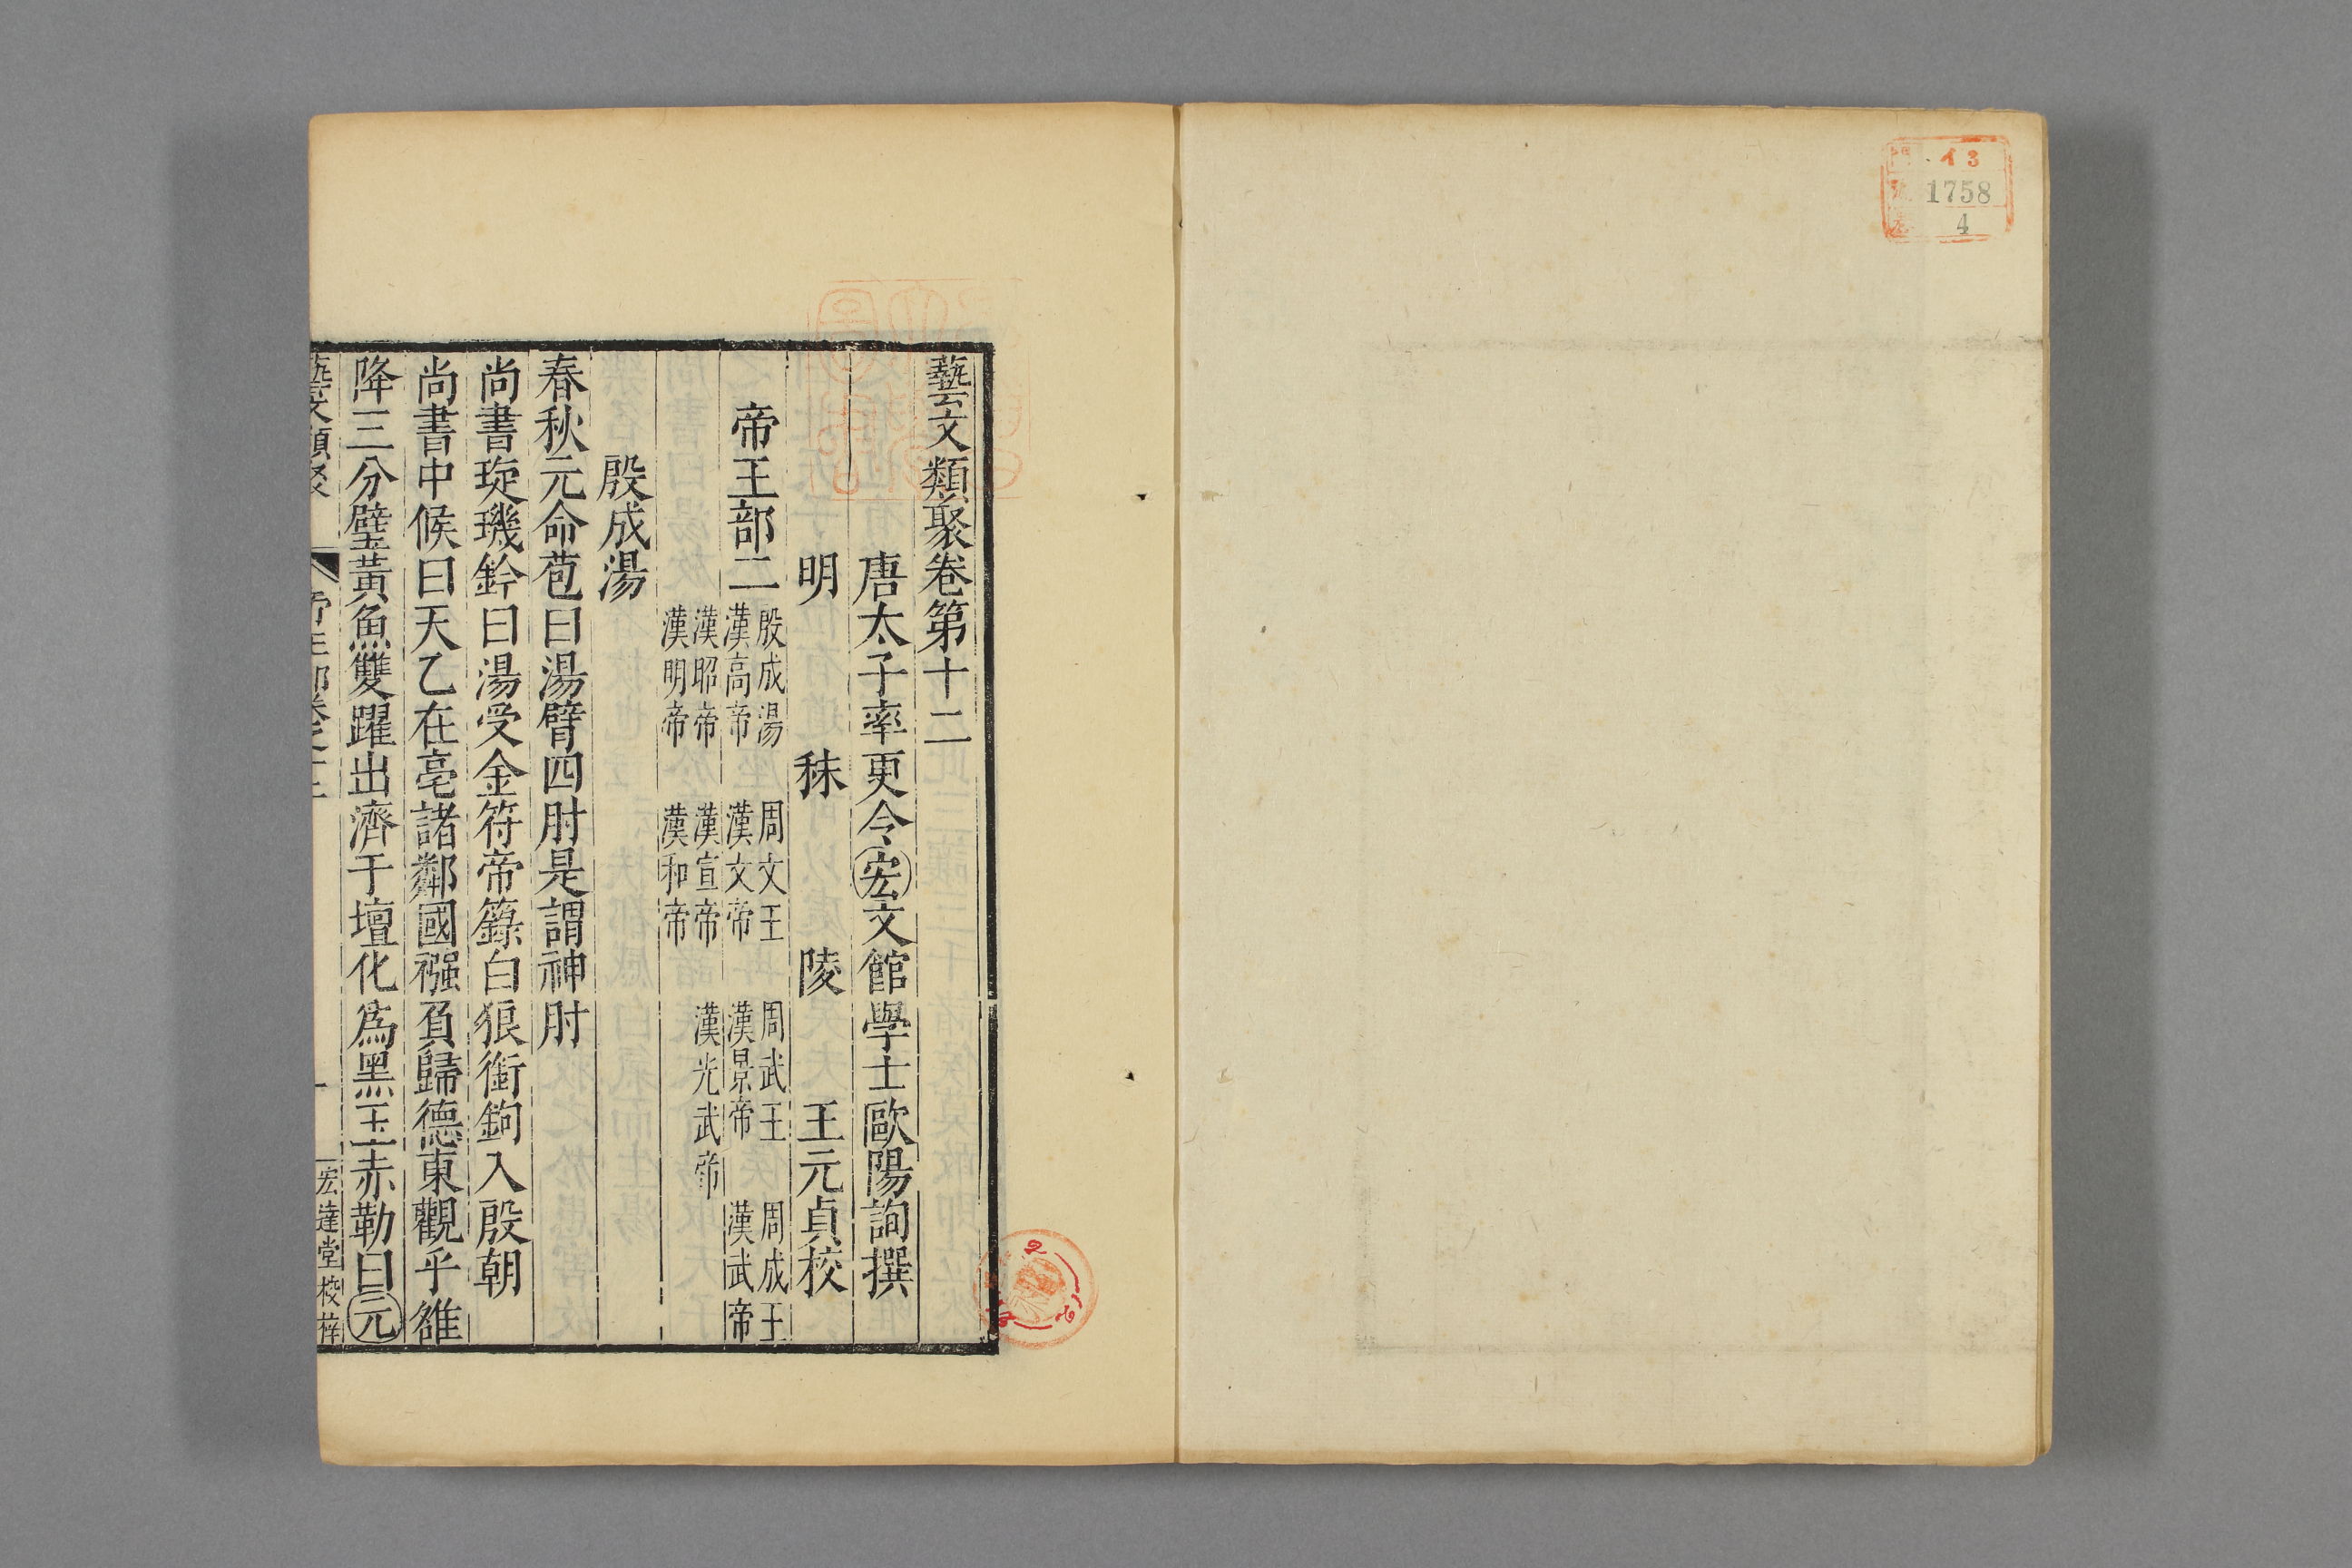 イ3
1758
4
藝文類聚卷第十二
唐太子率更令宏文館學士歐陽詢撰
明 秣 陵 王元貞校
帝王部二
殷成湯 周文王 周武王 周成王
漢高帝 漢文帝 漢景帝 漢武帝
漢昭帝 漢宣帝 漢光武帝
漢明帝 漢和帝
殷成湯
春秋元命苞曰湯臂四肘是謂神肘
尚書琁璣鈐曰湯受金符帝籙白狼銜鉤入殷朝
尚書中候曰天乙在亳諸鄰國襁負歸德東觀乎雒
降三分璧黃魚雙躍出濟于壇化爲黑玉赤勒曰元
藝文類聚 帝王部卷之十二 一 宏達堂校梓